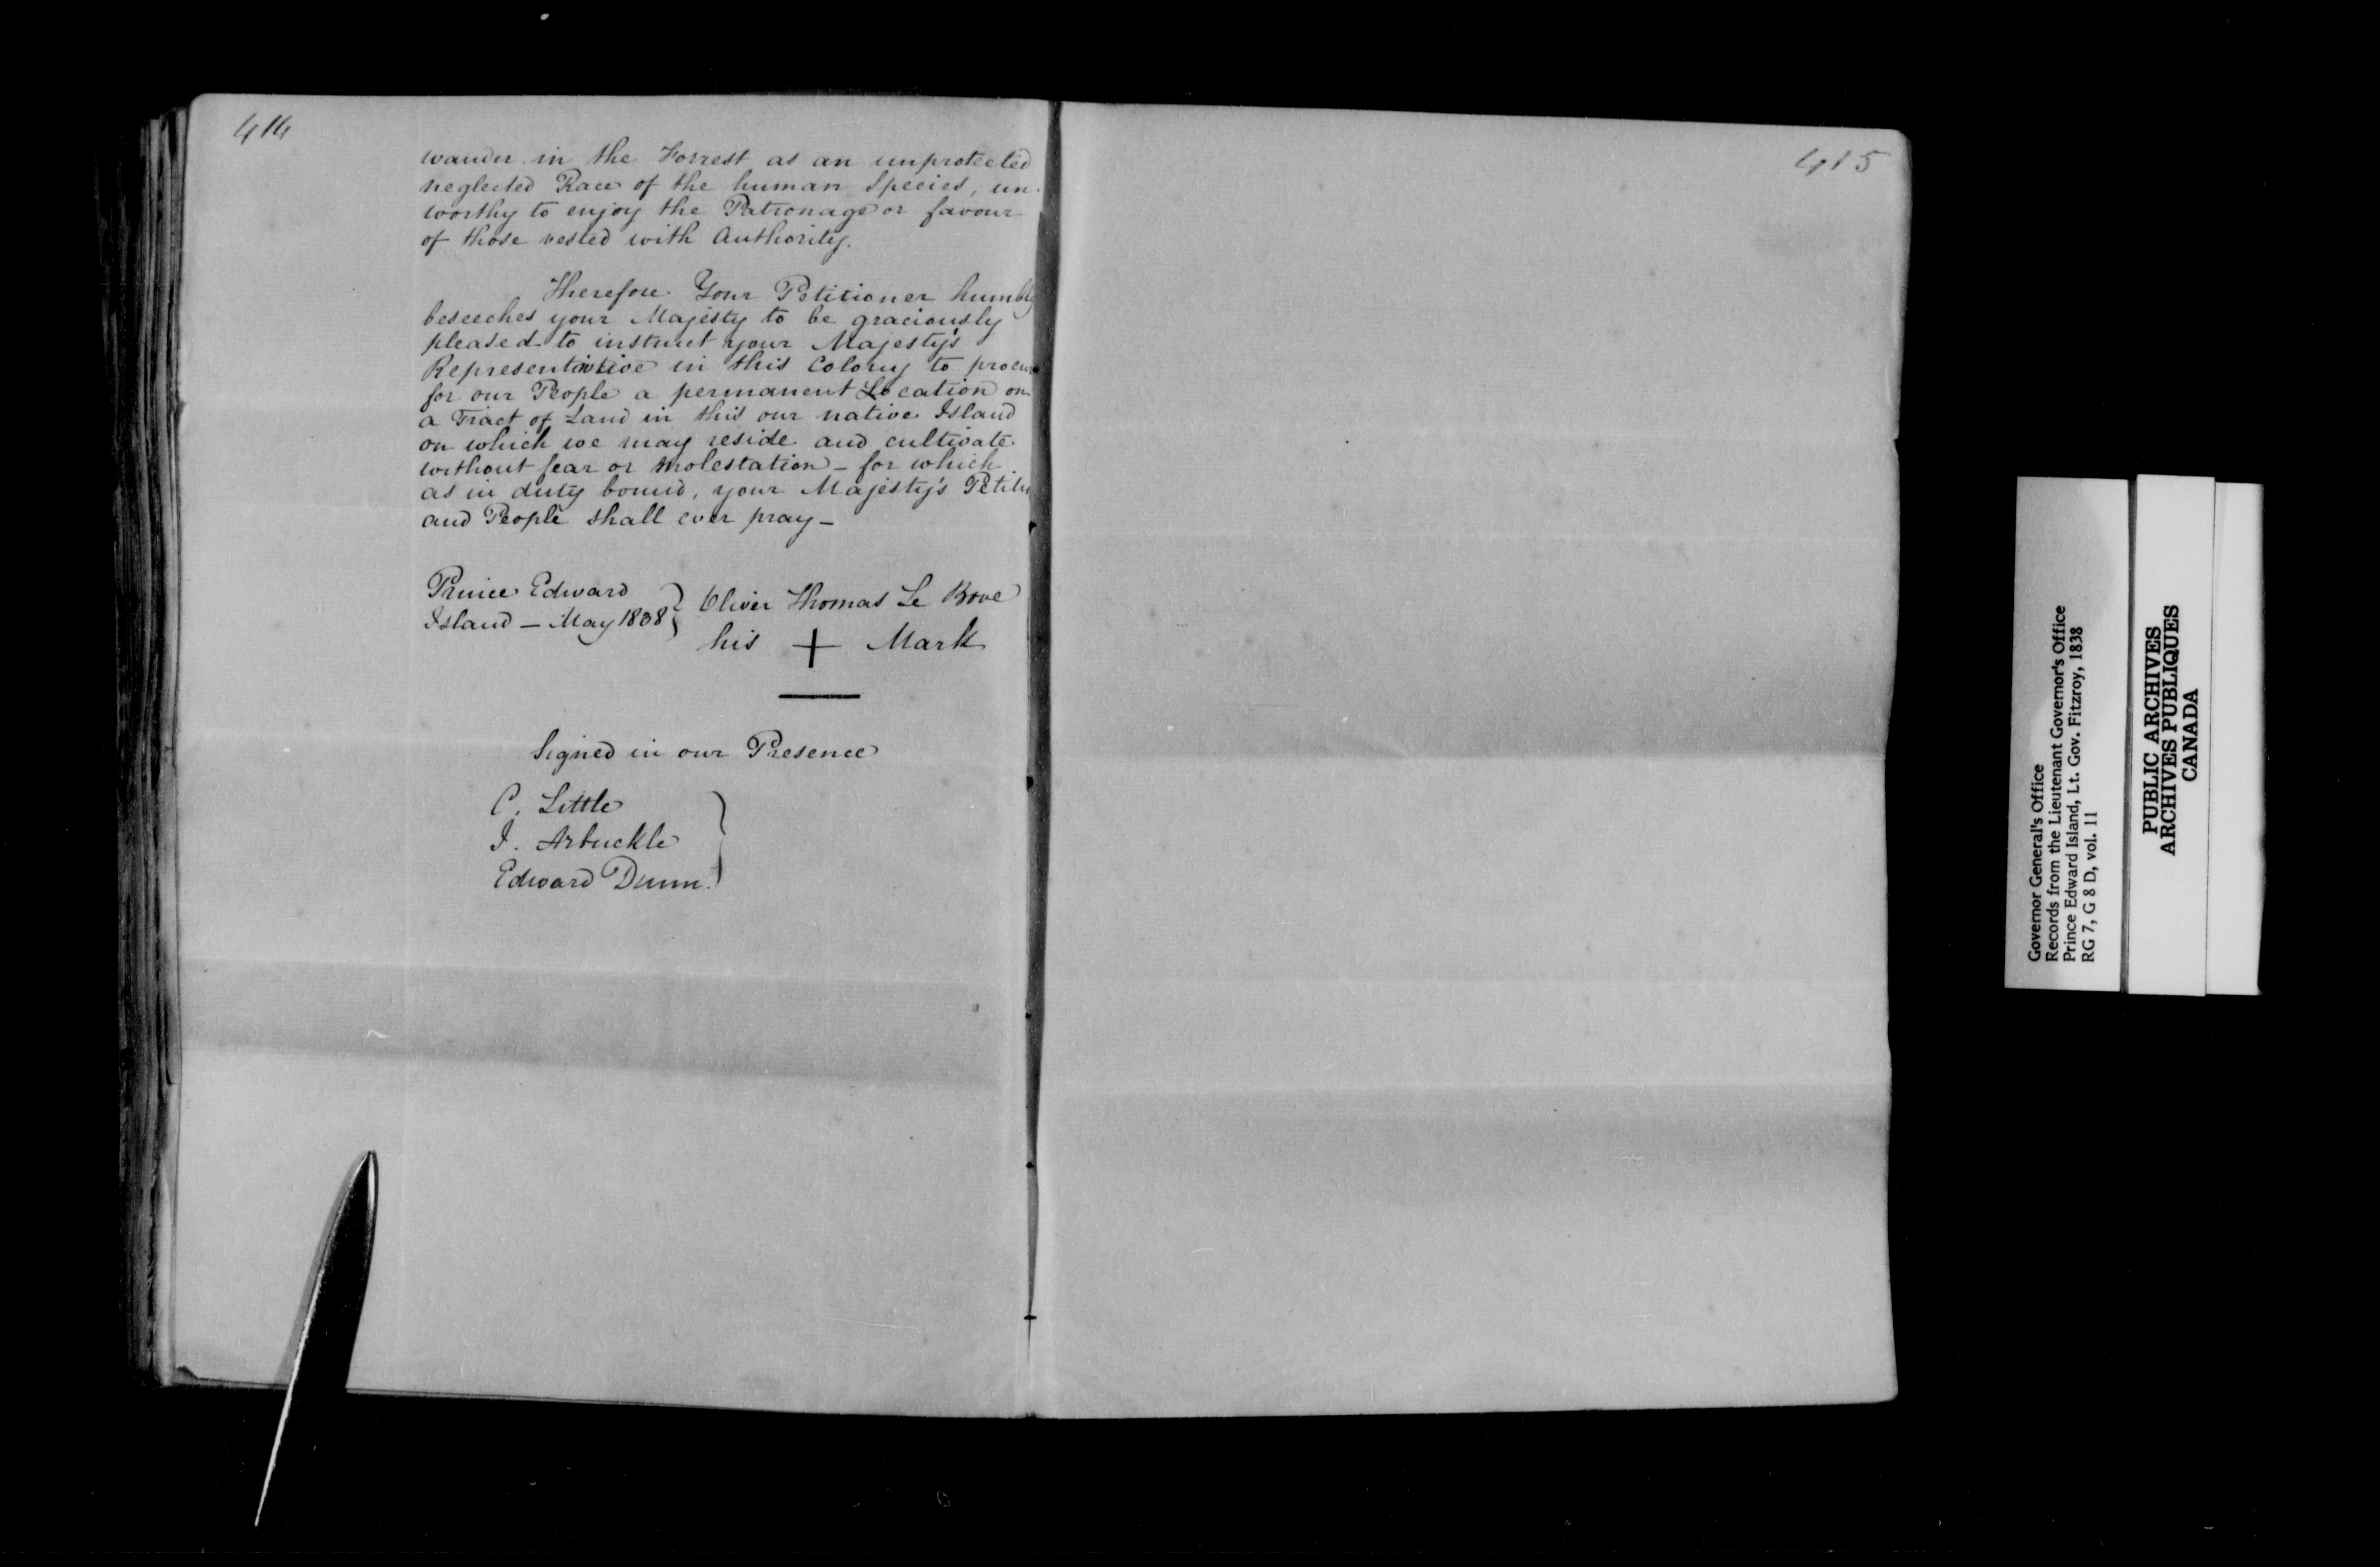 414
wander in the Forrest as an unprotected
neglected Race of the human Species, un-
worthy to enjoy the Patronage or favour
of those vested with Authority.
Therefore Your Petitioner humbly
beseeches your Majesty to be graciously
pleased to instruct your Majesty's
Representative in this Colony to procure
for our People a permanent Location on
a Tract of Land in this our native Island
on which we may reside and cultivate
without fear or Molestation – for which
as in duty bound, your Majesty's
and People shall ever pray –
Prince Edward
Island – May 1838
Oliver Thomas Le Bone
his + Mark
Signed in our Presence
C. Little
I. Arbuckle
Edward Dunn.
415
Governor General's Office
Records from the Lieutenant Governor's Office
Prince Edward Island, Lt. Gov. Fitzroy, 1838
RG 7, G 8 D, vol. 11
PUBLIC ARCHIVES
ARCHIVES PUBLIQUES
CANADA